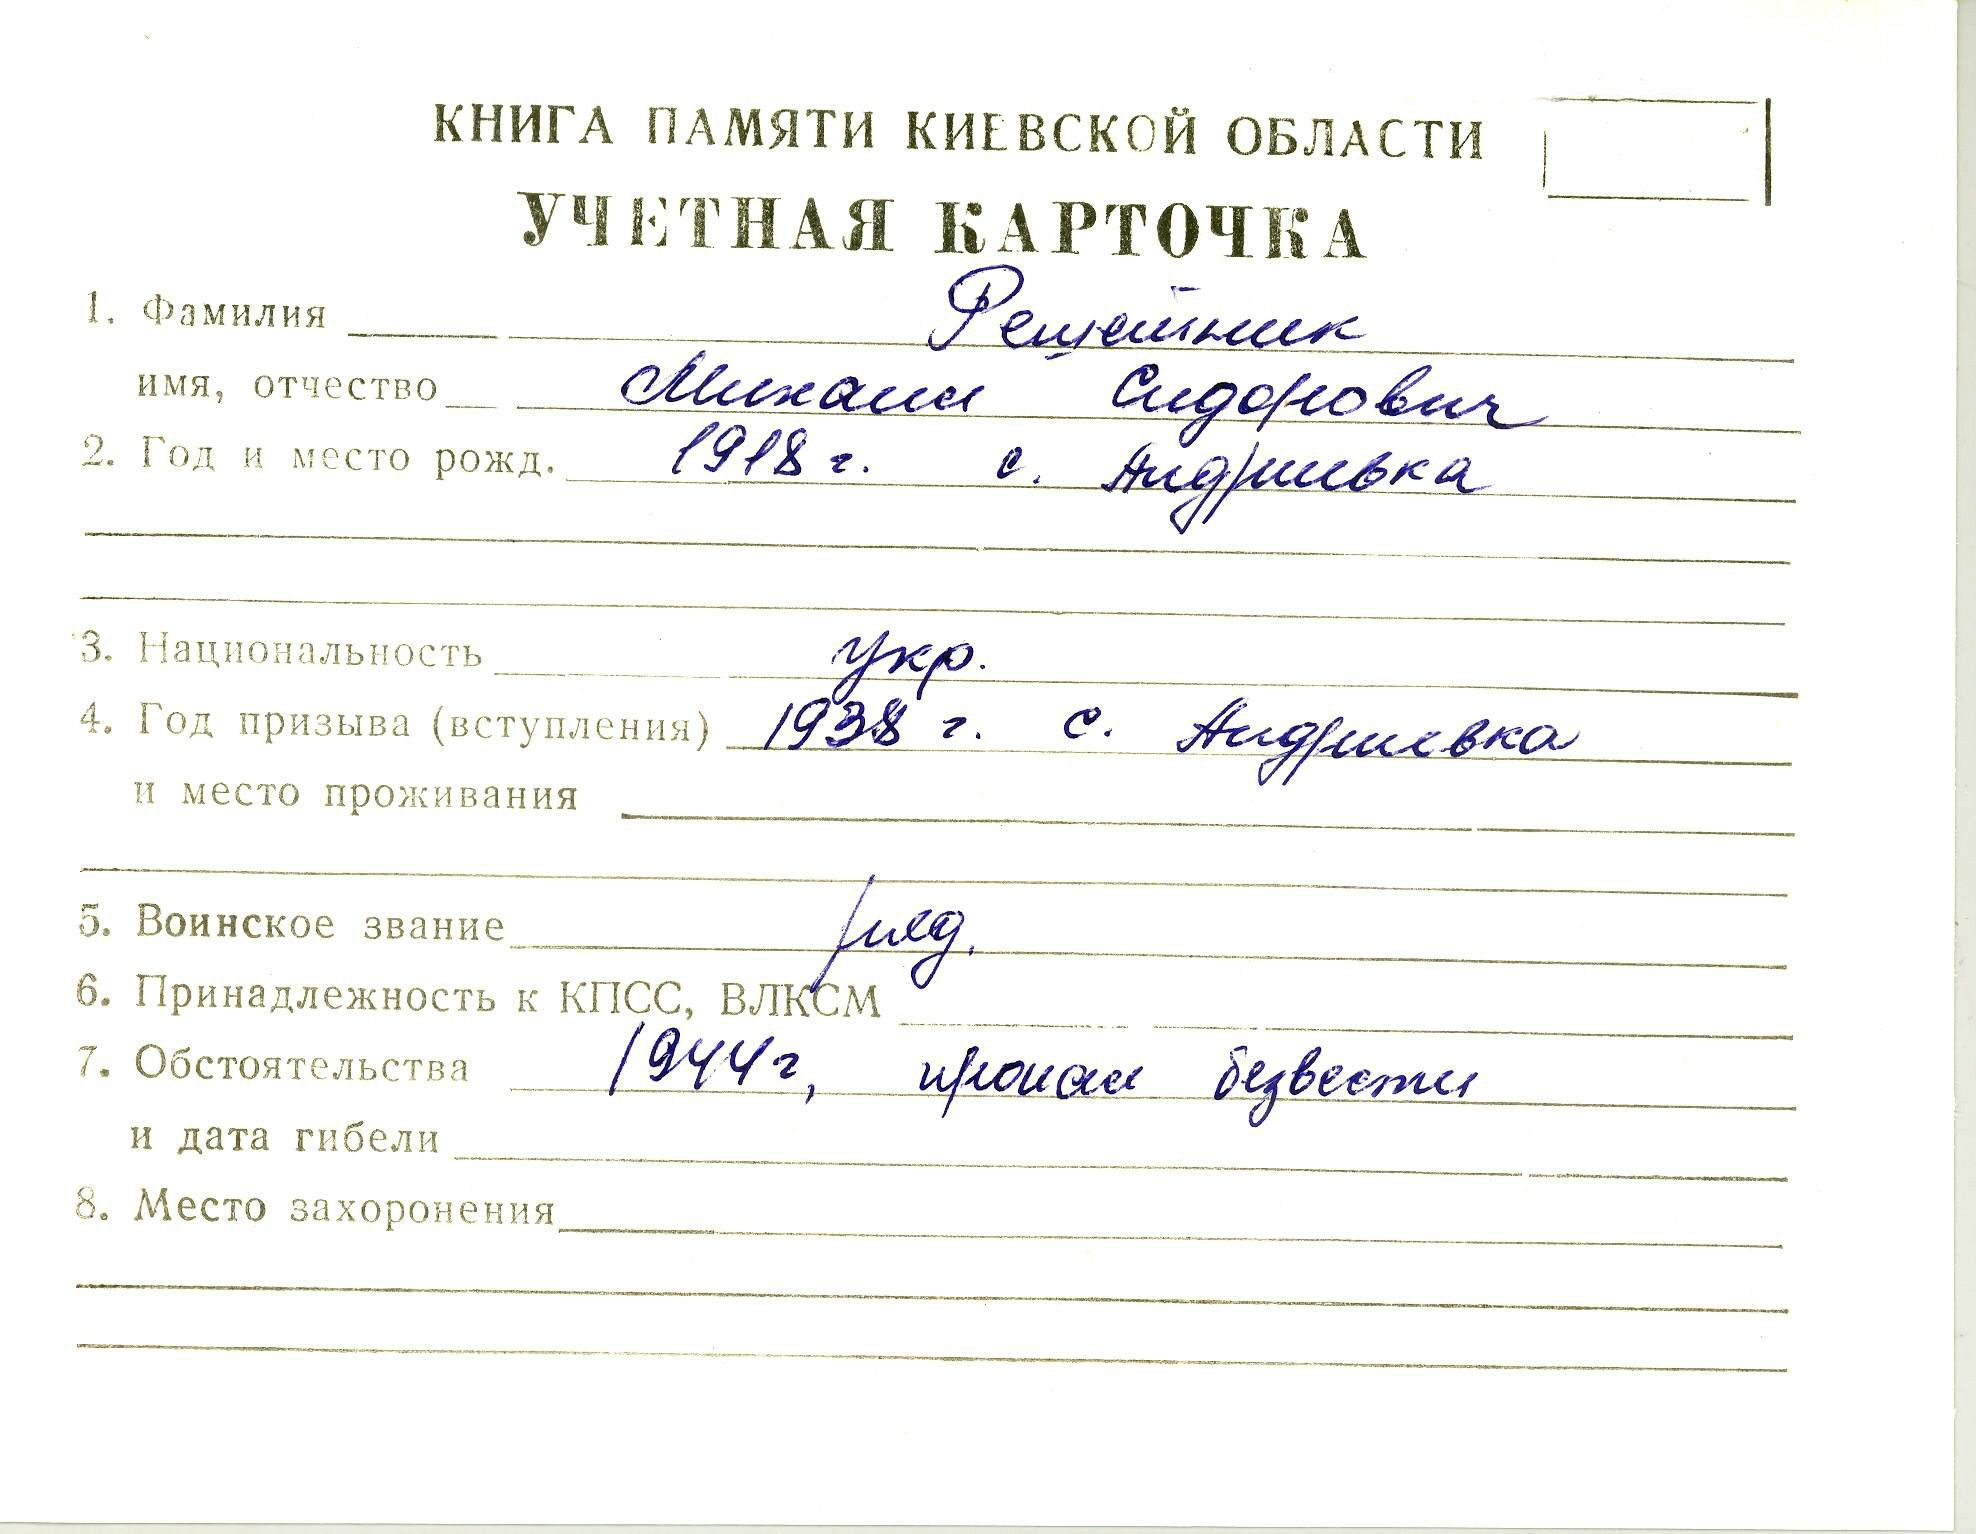 КНИГА ПАМЯТИ КИЕВСКОЙ ОБЛАСТИ
УЧЕТНАЯ КАРТОЧКА
1. Фамилия Решетник
имя, отчество Михаил Сидорович
2. Год и место рожд. 1918 г. с. Андриевка
3. Национальность укр.
4. Год призыва (вступления) 1938 г. с. Андриевка
и место проживания
5. Воинское звание ряд.
6. Принадлежность к КПСС, ВЛКСМ
7. Обстоятельства 1944г, пропал безвести
и дата гибели
8. Место захоронения